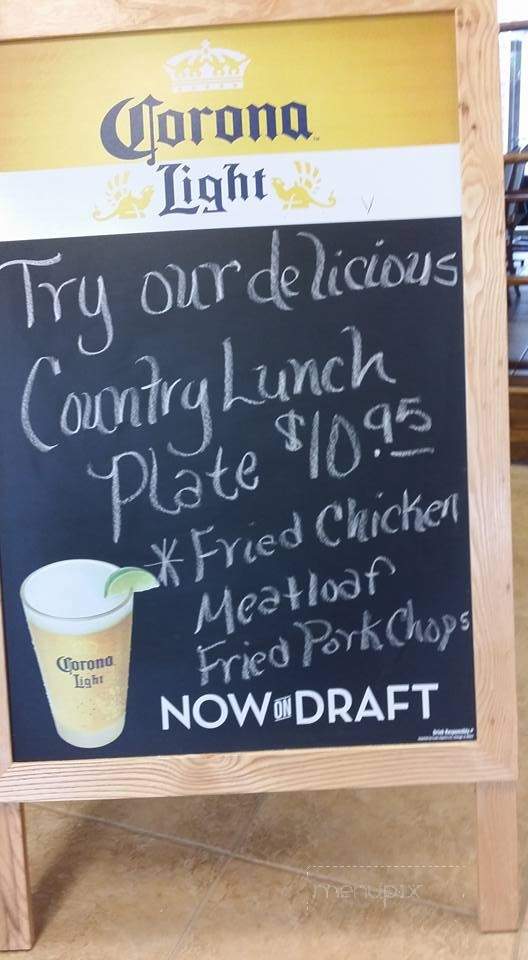 Corona
Light
Try our delicious
Country Lunch
Plate $10.95
*Fried Chicken
Meatloaf
Fried Pork Chops
Corona
Light
NOW ON DRAFT
menupix